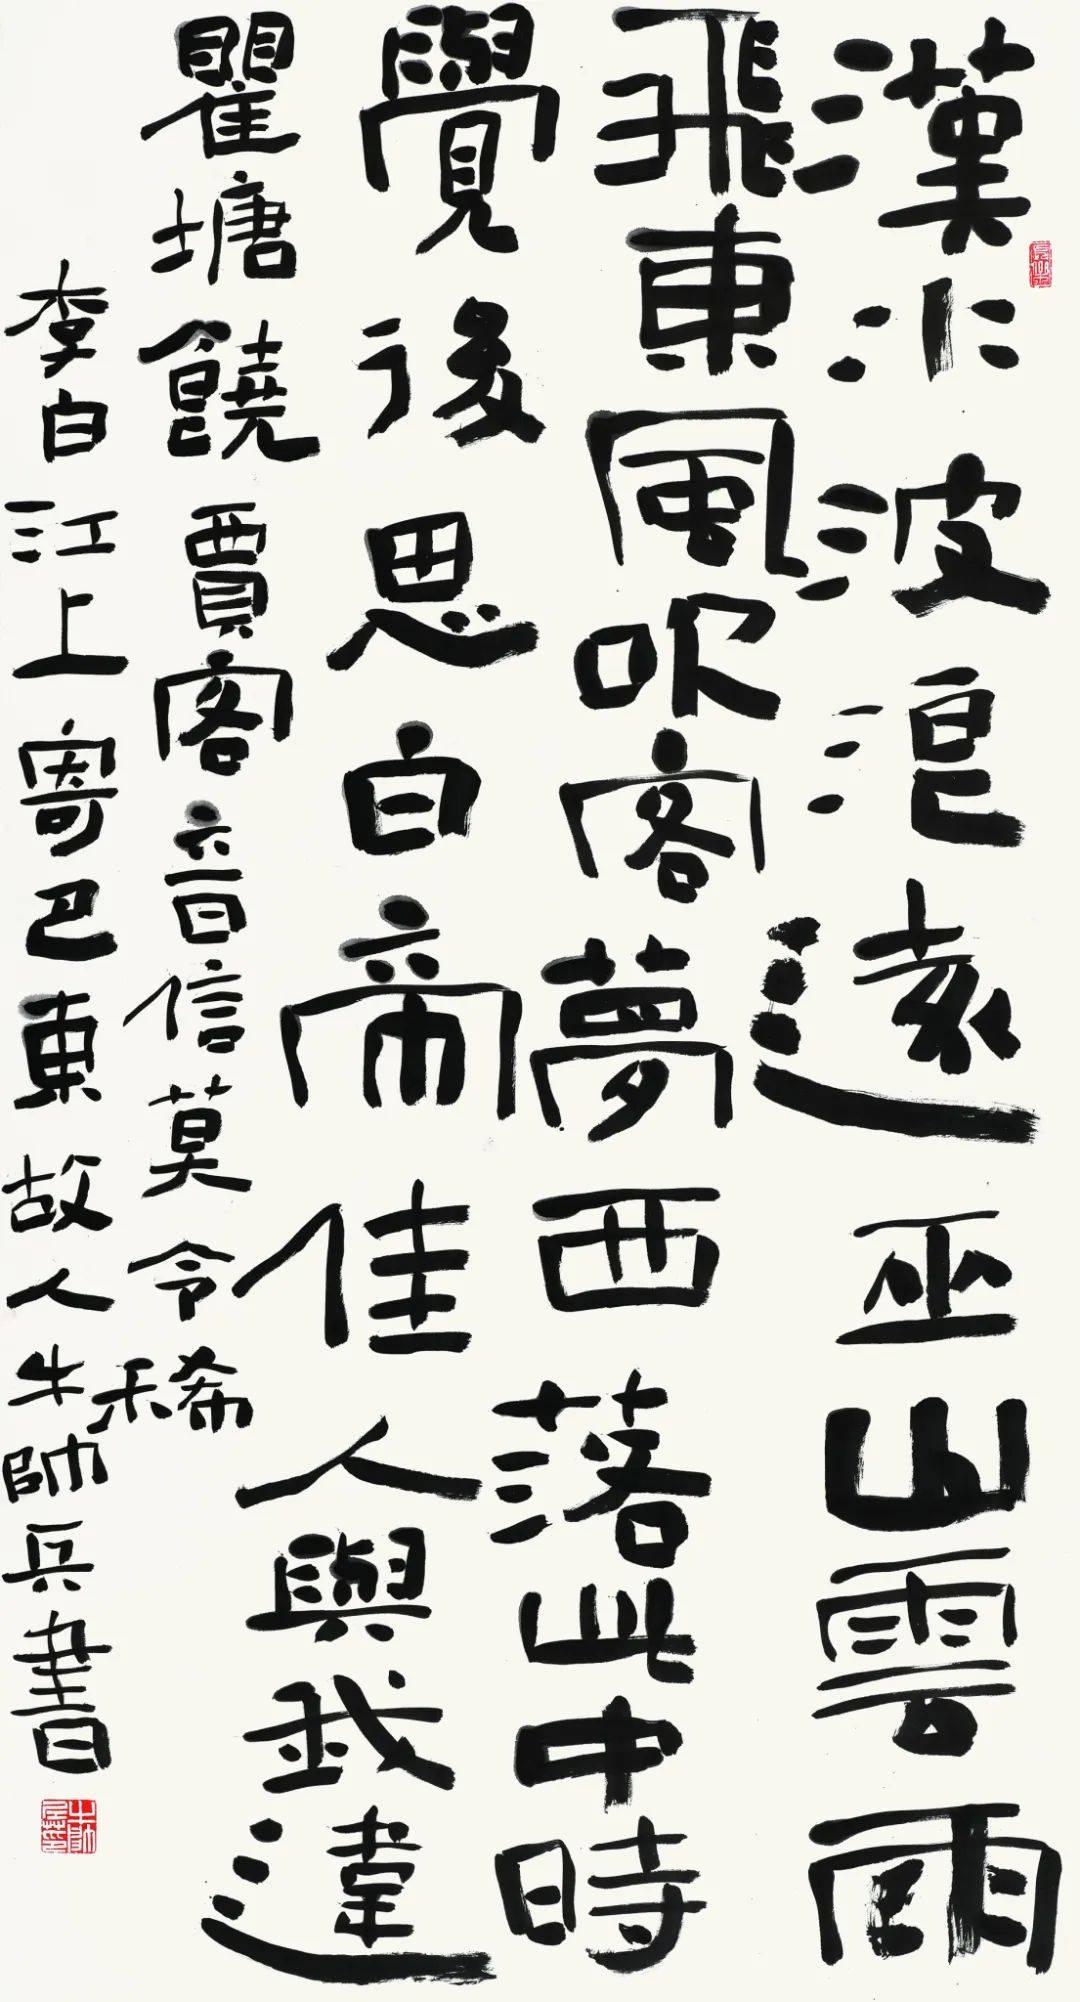 漢水波浪遠巫山雲雨
飛東風吹客夢西落此中時
覺後思白帝佳人與我違
瞿塘饒賈客音信莫令稀
李白江上寄巴東故人牛帥兵書